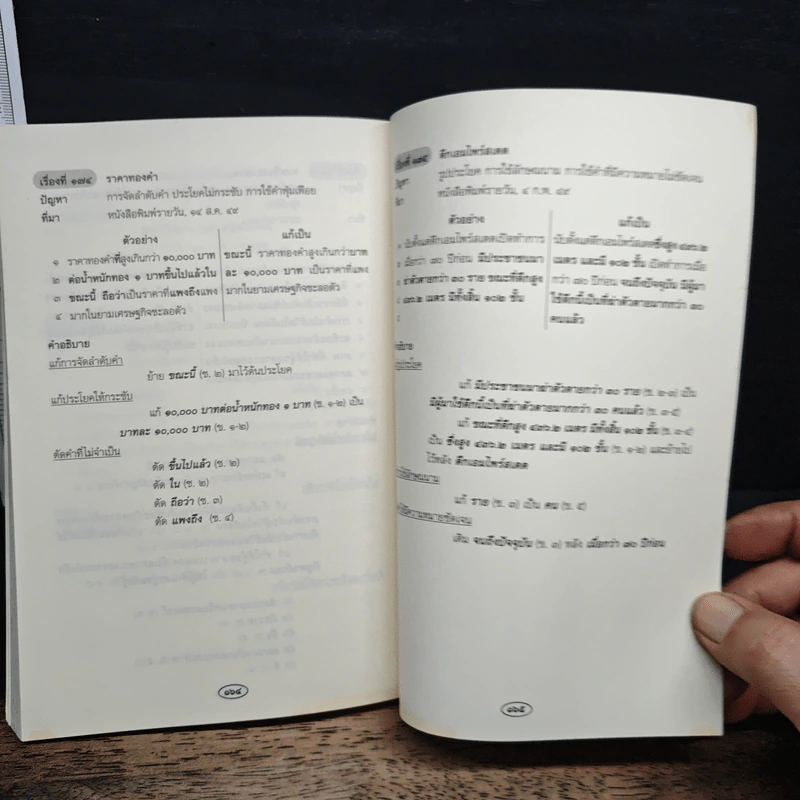 เรื่องที่ ๑๗๔ ราคาทองคำ
ปัญหา การจัดลำดับคำ ประโยคไม่กระชับ การใช้คำฟุ่มเฟือย
ที่มา หนังสือพิมพ์รายวัน, ๑๔ ส.ค. ๔๙
ตัวอย่าง
๑ ราคาทองคำที่สูงเกินกว่า ๑๐,๐๐๐ บาท
๒ ต่อน้ำหนักทอง ๑ บาทขึ้นไปแล้วใน
๓ ขณะนี้ ถือว่าเป็นราคาที่แพงถึงแพง
๔ มากในยามเศรษฐกิจชะลอตัว
แก้เป็น
ขณะนี้ ราคาทองคำสูงเกินกว่าบาท
ละ ๑๐,๐๐๐ บาท เป็นราคาที่แพง
มากในยามเศรษฐกิจชะลอตัว
คำอธิบาย
แก้การจัดลำดับคำ
ย้าย ขณะนี้ (ช. ๒) มาไว้ต้นประโยค
แก้ประโยคให้กระชับ
แก้ ๑๐,๐๐๐ บาทต่อน้ำหนักทอง ๑ บาท (ช. ๑-๒) เป็น
บาทละ ๑๐,๐๐๐ บาท (ช. ๑-๒)
ตัดคำที่ไม่จำเป็น
ตัด ขึ้นไปแล้ว (ช. ๒)
ตัด ใน (ช. ๒)
ตัด ถือว่า (ช. ๓)
ตัด แพงถึง (ช. ๔)
๑๖๔
เรื่องที่ ๑๗๕ ตึกเอมไพร์สเตต
ปัญหา รูปประโยค การใช้ลักษณนาม การใช้คำที่มีความหมายไม่ชัดเจน
ที่มา หนังสือพิมพ์รายวัน, ๔ ก.พ. ๔๙
ตัวอย่าง
๑ นับตั้งแต่ตึกเอมไพร์สเตตเปิดทำการ
เมื่อกว่า ๗๐ ปีก่อน มีประชาชนมา
ฆ่าตัวตายกว่า ๓๐ ราย ขณะที่ตึกสูง
๔๓๖.๒ เมตร มีทั้งสิ้น ๑๐๒ ชั้น
แก้เป็น
นับตั้งแต่ตึกเอมไพร์สเตตซึ่งสูง ๔๓๖.๒
เมตร และมี ๑๐๒ ชั้น เปิดทำการเมื่อ
กว่า ๗๐ ปีก่อน จนถึงปัจจุบัน มีผู้มา
ใช้ตึกนี้เป็นที่ฆ่าตัวตายมากกว่า ๓๐
คนแล้ว
แก้ มีประชาชนมาฆ่าตัวตายกว่า ๓๐ ราย (ช. ๒-๓) เป็น
มีผู้มาใช้ตึกนี้เป็นที่ฆ่าตัวตายมากกว่า ๓๐ คนแล้ว (ช. ๓-๕)
แก้ ขณะที่ตึกสูง ๔๓๖.๒ เมตร มีทั้งสิ้น ๑๐๒ ชั้น (ช. ๓-๔)
เป็น ซึ่งสูง ๔๓๖.๒ เมตร และมี ๑๐๒ ชั้น (ช. ๑-๒) และย้ายไป
ไว้หลัง ตึกเอมไพร์สเตต
แก้ ราย (ช. ๓) เป็น คน (ช. ๕)
เติม จนถึงปัจจุบัน (ช. ๓) หลัง เมื่อกว่า ๗๐ ปีก่อน
๑๖๕